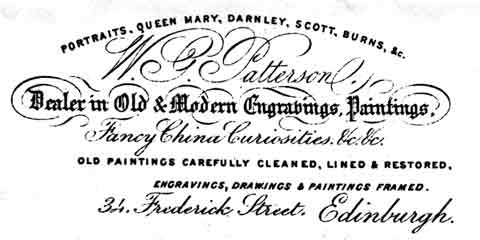 PORTRAITS, QUEEN MARY, DARNLEY, SCOTT, BURNS, &c.
W. G. Patterson,
Dealer in Old & Modern Engravings, Paintings,
Fancy China Curiosities. &c. &c.
OLD PAINTINGS CAREFULLY CLEANED, LINED & RESTORED,
ENGRAVINGS, DRAWINGS & PAINTINGS FRAMED.
34. Frederick Street. Edinburgh.